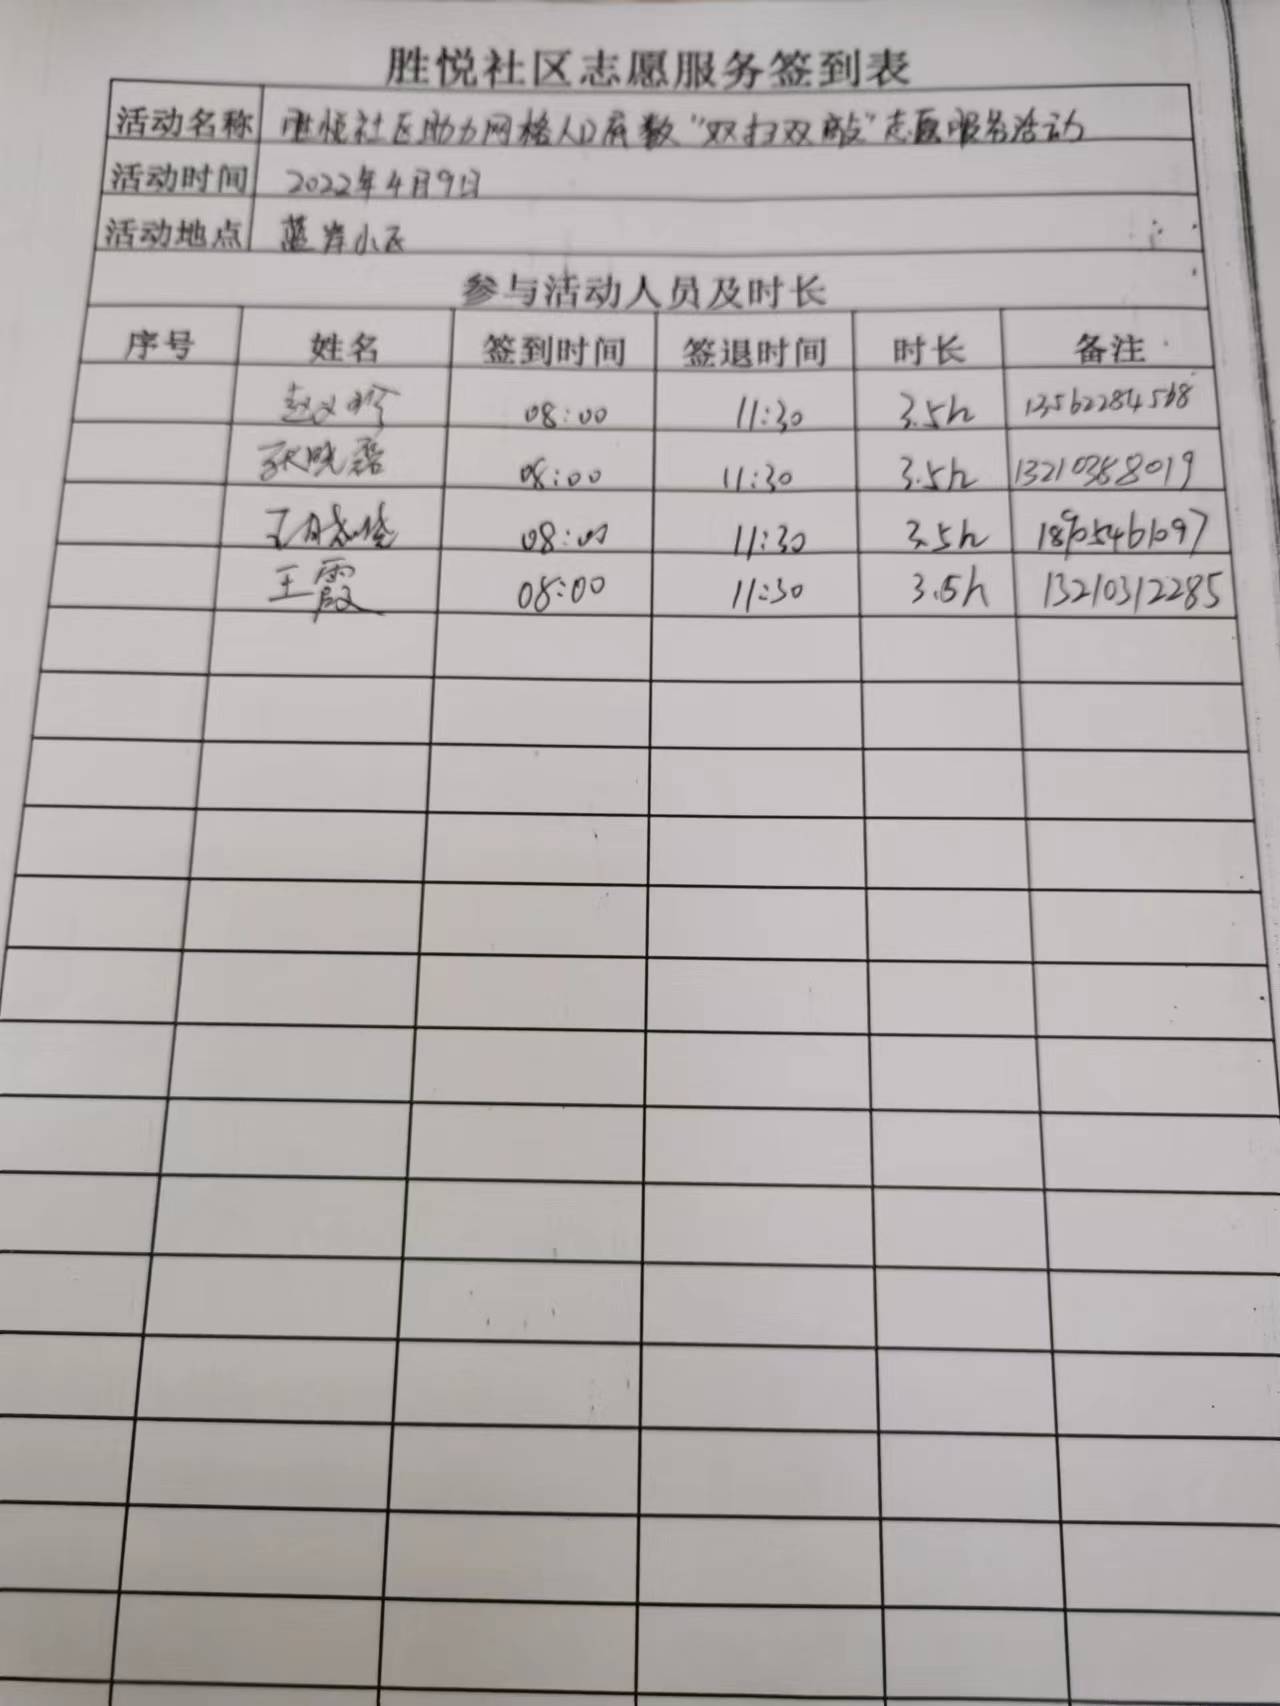 胜悦社区志愿服务签到表
活动名称 胜悦社区助力网格人口底数“双扫双敲”志愿服务活动
活动时间 2022年4月9日
活动地点 蓝岸小区
参与活动人员及时长
序号 姓名 签到时间 签退时间 时长 备注
08:00 11:30 3.5h 13562284568
晓磊 08:00 11:30 3.5h 13210388019
王 08:00 11:30 3.5h
王霞 08:00 11:30 3.5h 13210312285